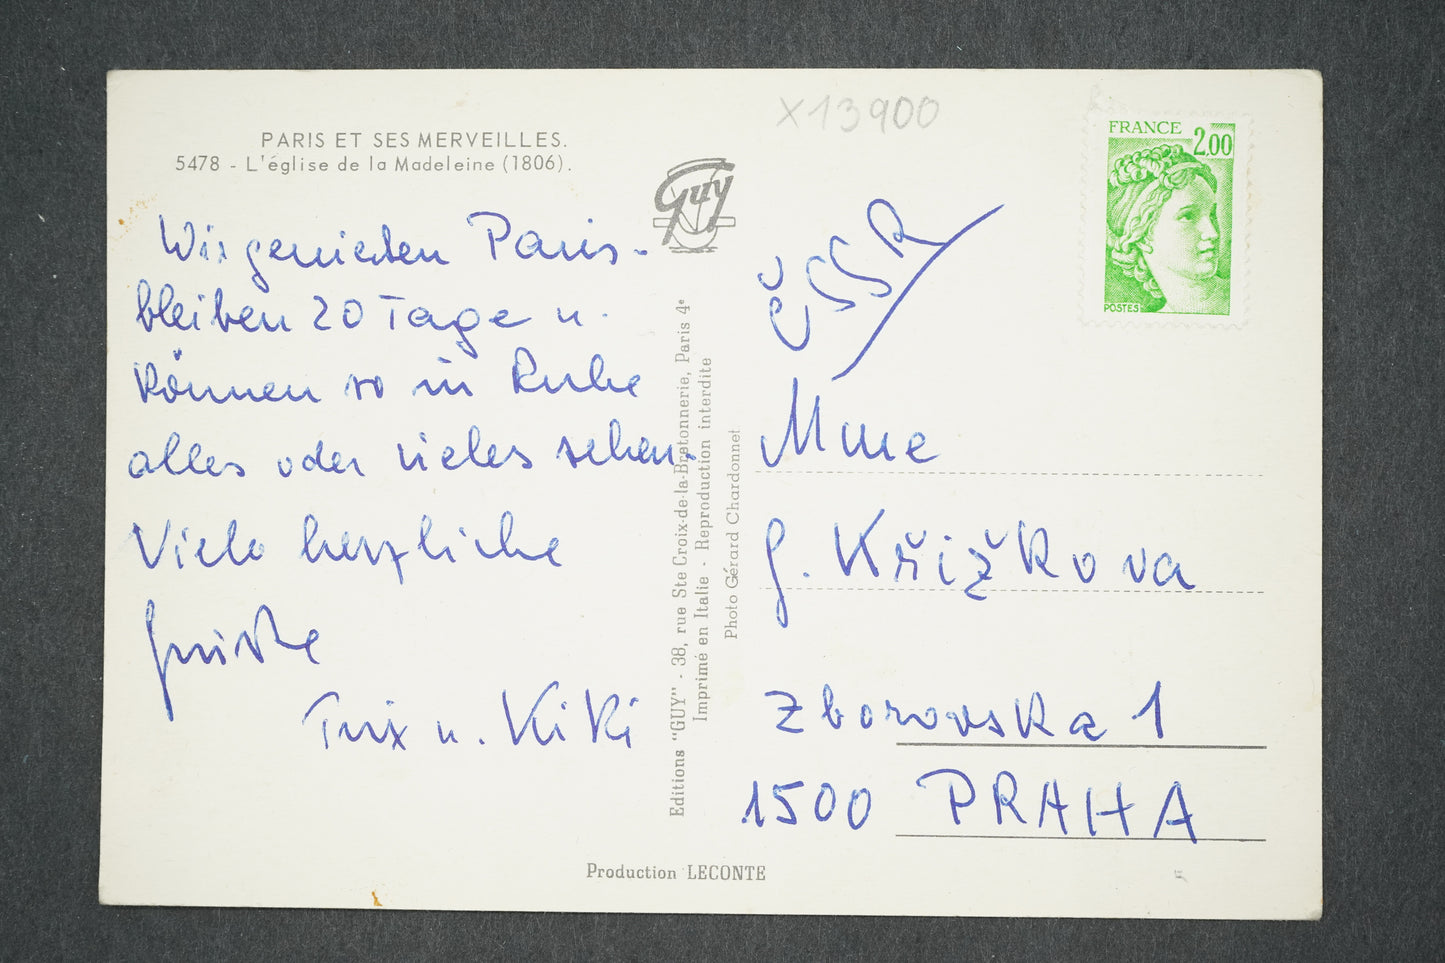 PARIS ET SES MERVEILLES.
5478 - L'église de la Madeleine (1806).
Wir genießen Paris -
bleiben 20 Tage u.
können so in Ruhe
alles oder vieles sehen.
Viele herzliche
Grüße
Trix u. Kiki
Guy
Editions "GUY" - 38, rue Ste Croix-de-la-Bretonnerie, Paris 4e
Imprimé en Italie - Reproduction interdite
Photo Gérard Chardonnet
Production LECONTE
X13900
FRANCE
2,00
POSTES
ČSSR
Mme
G. Křižkova
Zborovska 1
1500 PRAHA